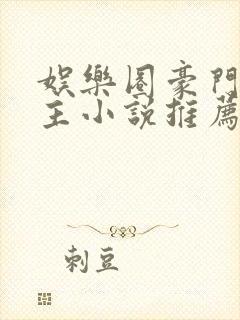 娛樂圈豪門
主小說推薦
刺豆